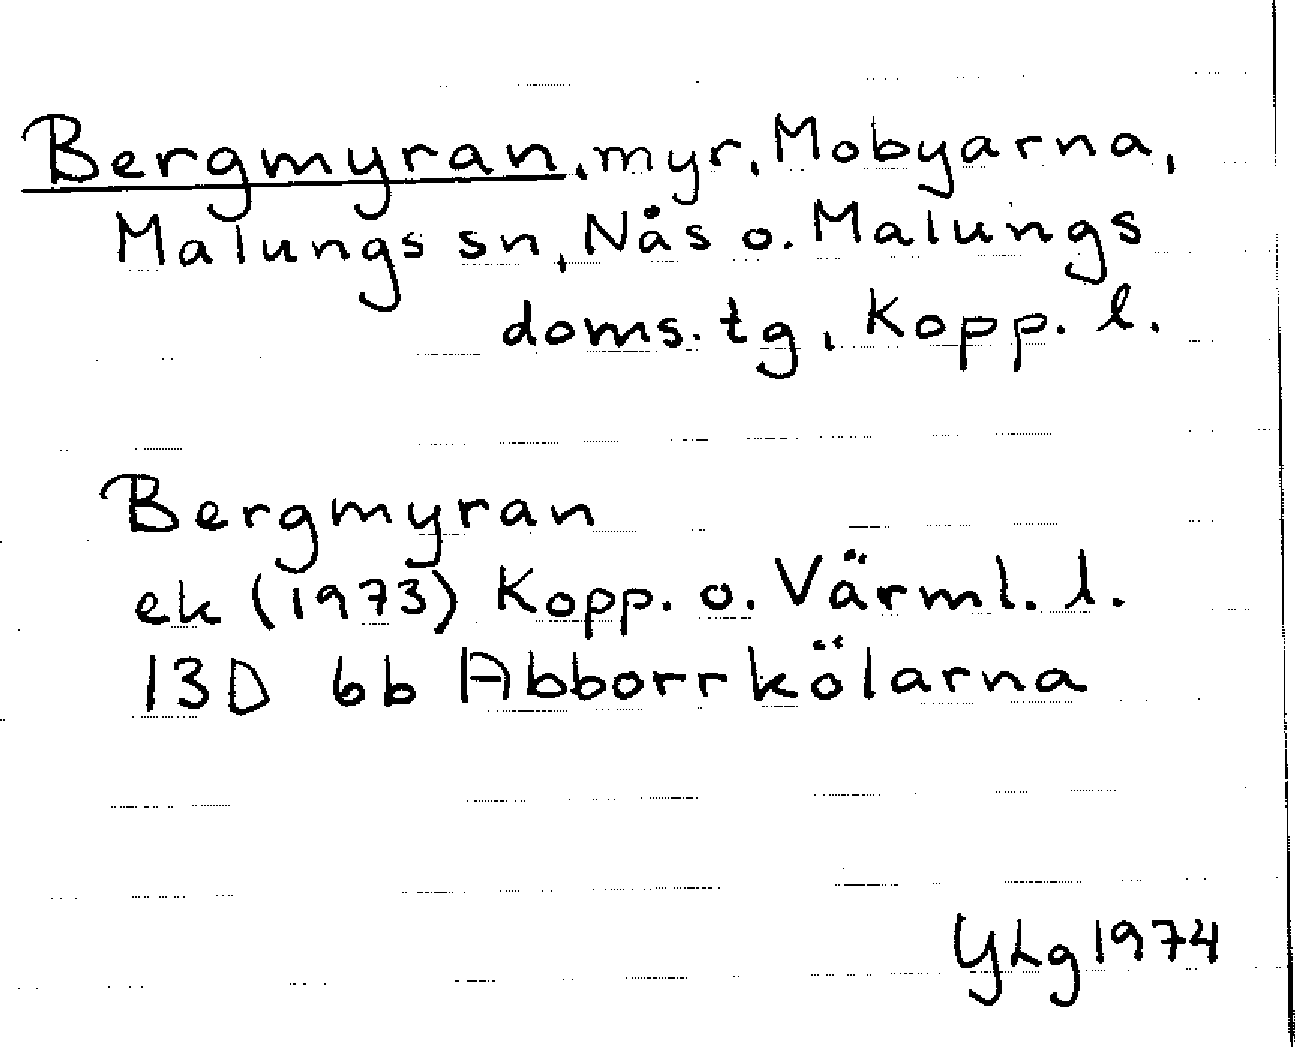 Bergmyran, myr, Mobyarna,
Malungs sn, Nås o. Malungs
doms. tg, Kopp. l.
Bergmyran
ek (1973) Kopp. o. Värml. l.
13D 6b Abborrkölarna
YLg 1974